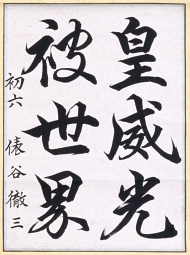 皇威光
被世界
初六 俵谷徹三